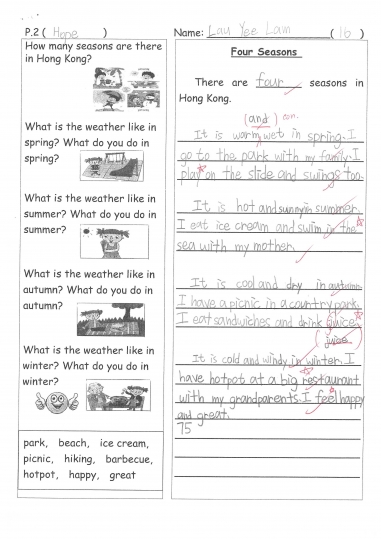 P.2 ( Hope )
Name: Lau Yee Lam ( 16 )
How many seasons are there
in Hong Kong?
What is the weather like in
spring? What do you do in
spring?
What is the weather like in
summer? What do you do in
summer?
What is the weather like in
autumn? What do you do in
autumn?
What is the weather like in
winter? What do you do in
winter?
park, beach, ice cream,
picnic, hiking, barbecue,
hotpot, happy, great
Four Seasons
There are four seasons in
Hong Kong.
(and) con.
It is warm, wet in spring. I
go to the park with my family. I
play on the slide and swings too.
It is hot and sunny in summer.
I eat ice cream and swim in the
sea with my mother.
It is cool and dry in autumn.
I have a picnic in a country park.
I eat sandwiches and drink juice.
(juice)
It is cold and windy in winter. I
have hotpot at a big restaurant
with my grandparents. I feel happy
and great.
75